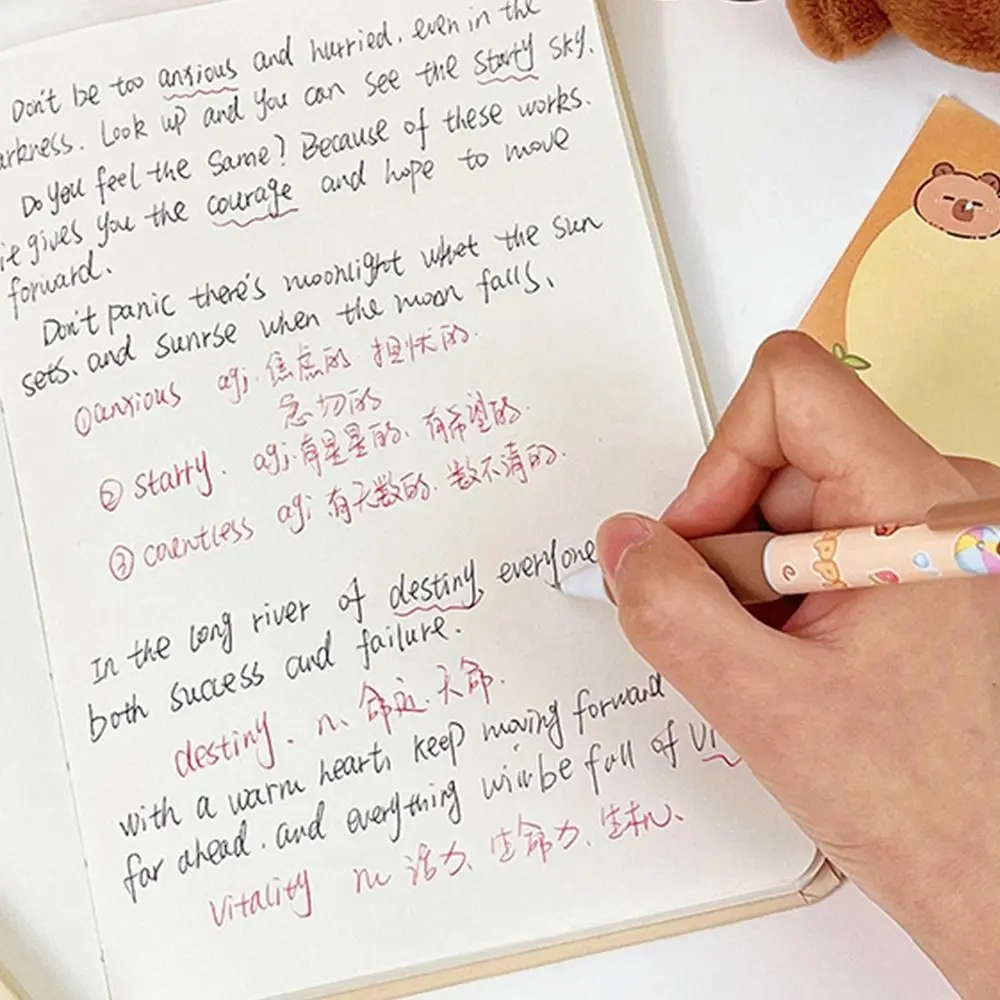 Don't be too anxious and hurried. even in the
arkness. Look up and you can see the starry sky.
Do you feel the same? Because of these works.
it gives you the courage and hope to move
forward.
Don't panic there's moonlight whet the sun
sets. and sunrse when the moon falls.
①anxious agj. 焦虑的. 担忧的.
急切的
② starry. agj. 有星星的、有希望的.
③ countless agj 有无数的. 数不清的.
In the long river of destiny, everyone
both success and failure.
destiny. n、命运. 天命.
with a warm heart, keep moving forward
far ahead. and everything will be full of vi
vitality n 活力、生命力、生机、